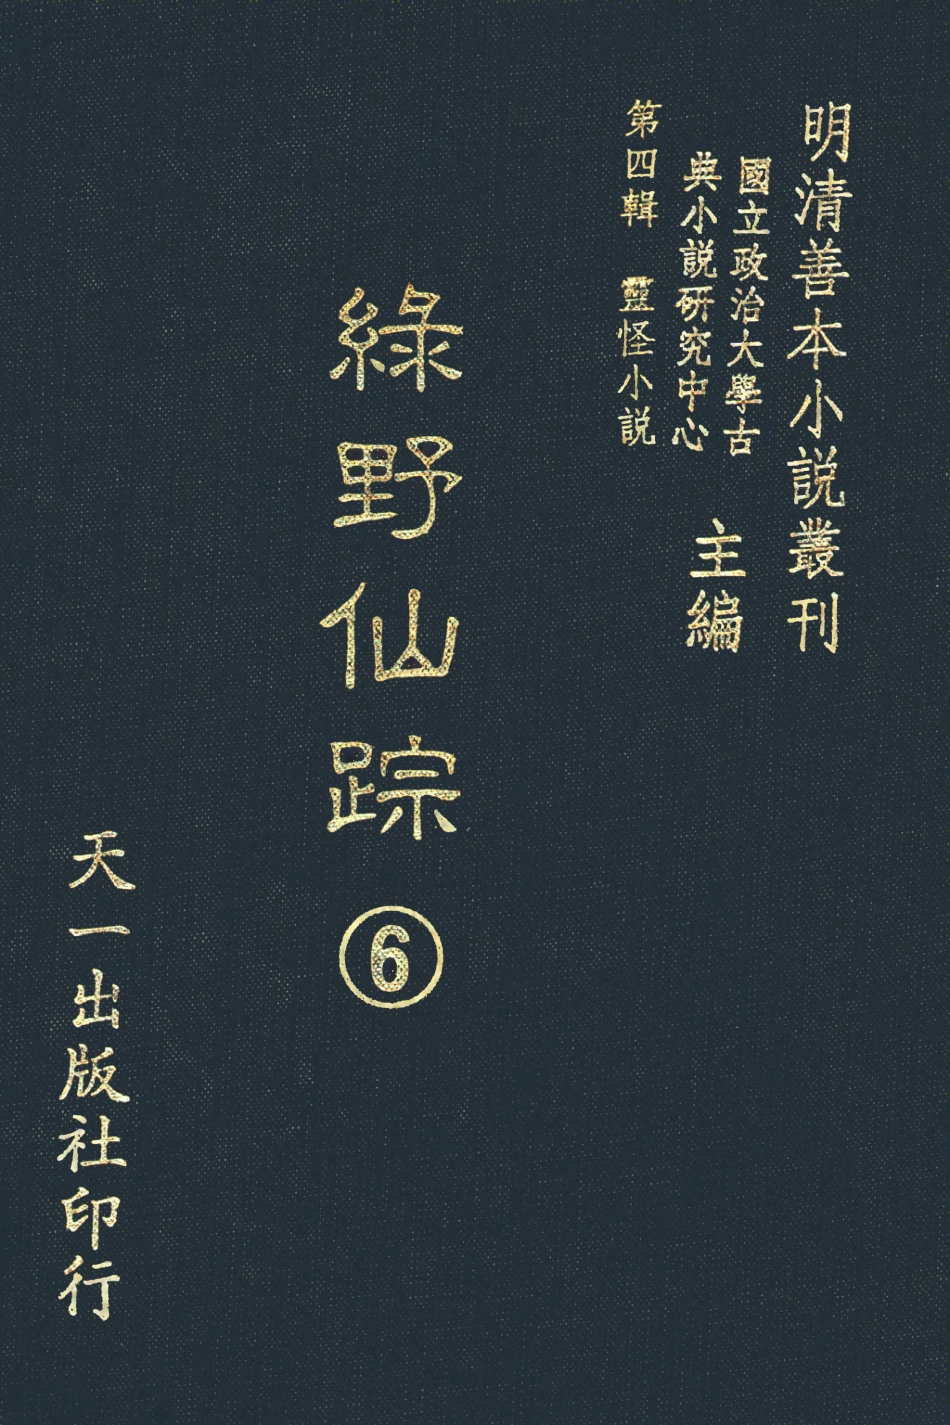 明清善本小説叢刊
國立政治大學古
典小説研究中心
主編
第四輯 靈怪小説
綠野仙踪⑥
天一出版社印行